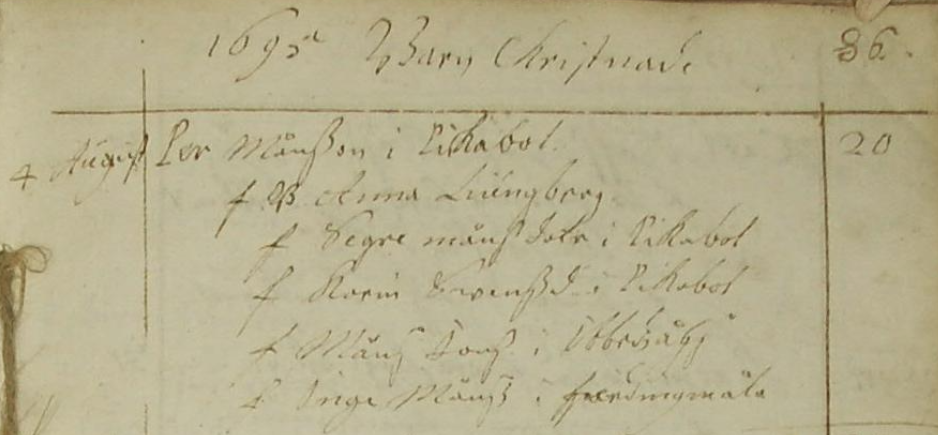 1695 Barn Christnade 86.
4 August Per Månsson i Rikabol. 20
f B Anna Liungberg
f Segre månß dotr i Rikabol
f Karin Swenß d. i Rikabol
f Månß Jonß i
f Inge Månß i fierdingmåla